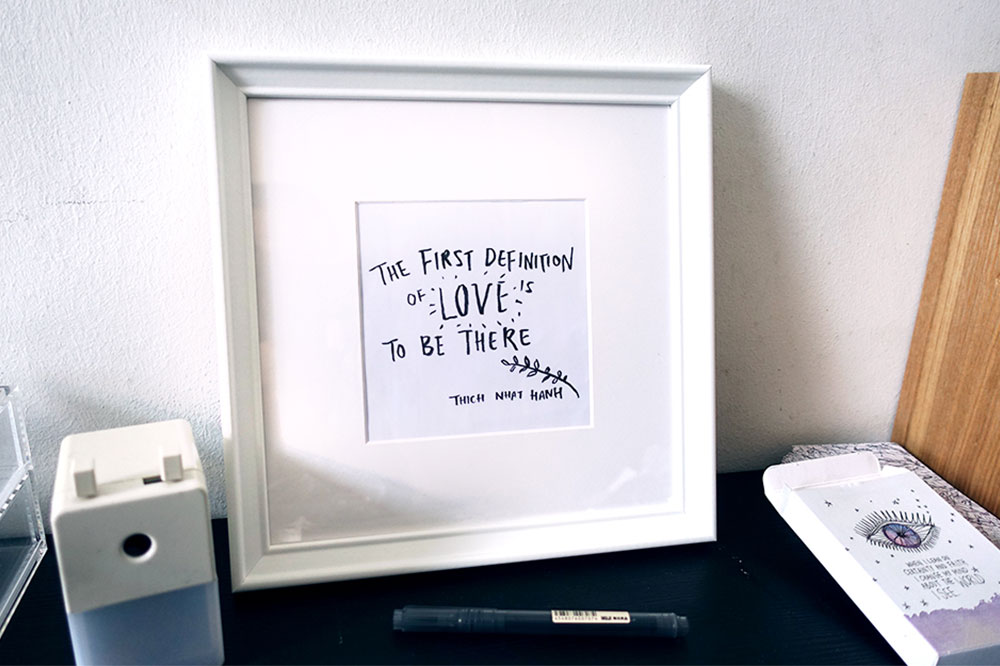 THE FIRST DEFINITION
OF LOVE IS
TO BE THERE
THICH NHAT HANH
WHEN I LEAN ON
CERTAINTY AND FAITH
I CHANGE MY MIND
ABOUT THE WORLD
I SEE